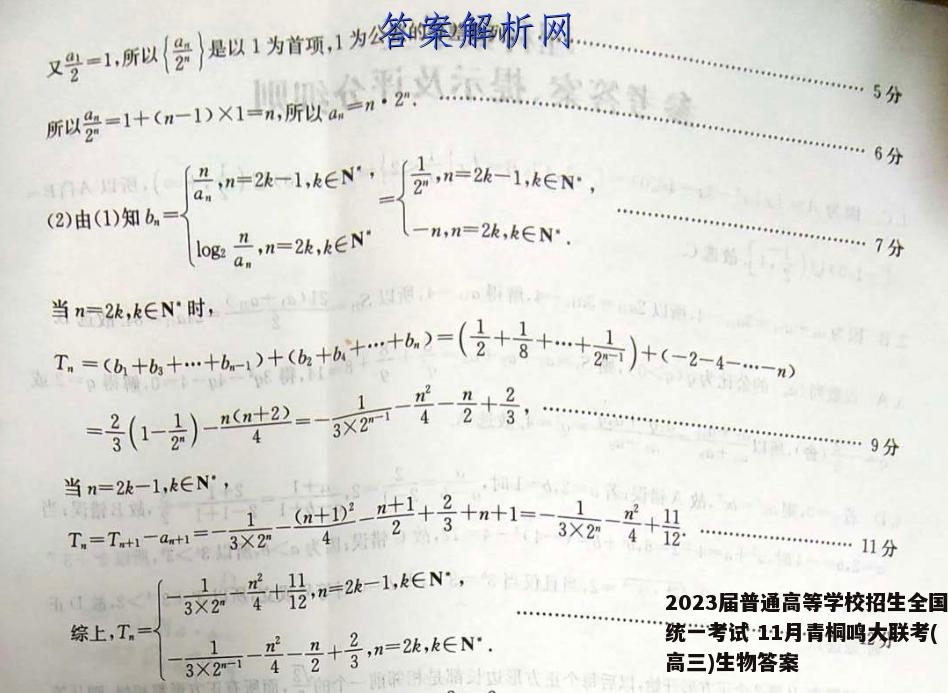 答案解析网
又a₁/2=1,所以{aₙ/2ⁿ}是以1为首项,1为公 的 差 列 ………… 5分
所以aₙ/2ⁿ=1+(n-1)×1=n,所以aₙ=n·2ⁿ. ………… 6分
(2)由(1)知bₙ={n/aₙ,n=2k-1,k∈N*, log₂ n/aₙ,n=2k,k∈N* ={1/2ⁿ,n=2k-1,k∈N*, -n,n=2k,k∈N*. ………… 7分
当n=2k,k∈N*时,
Tₙ=(b₁+b₃+…+bₙ₋₁)+(b₂+b₄+…+bₙ)=(1/2+1/8+…+1/2ⁿ⁻¹)+(-2-4-…-n)
=2/3(1-1/2ⁿ)-n(n+2)/4=-1/(3×2ⁿ⁻¹)-n²/4-n/2+2/3, ………… 9分
当n=2k-1,k∈N*,
Tₙ=Tₙ₊₁-aₙ₊₁=-1/(3×2ⁿ)-(n+1)²/4-(n+1)/2+2/3+n+1=-1/(3×2ⁿ)-n²/4+11/12. ………… 11分
综上,Tₙ={-1/(3×2ⁿ)-n²/4+11/12,n=2k-1,k∈N*, -1/(3×2ⁿ⁻¹)-n²/4-n/2+2/3,n=2k,k∈N*. …………
2023届普通高等学校招生全国
统一考试 11月青桐鸣大联考(
高三)生物答案